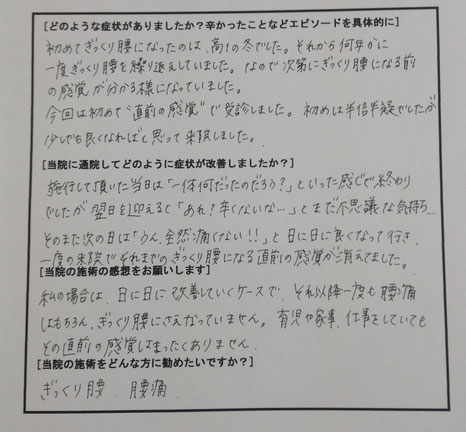 [どのような症状がありましたか？辛かったことなどエピソードを具体的に]
初めてぎっくり腰になったのは、高1の冬でした。それから何年かに
一度ぎっくり腰を繰り返えしていました。なので次第にぎっくり腰になる前
の感覚が分かる様になっていました。
今回は初めて"直前の感覚"で受診しました。初めは半信半疑でしたが
少しでも良くなればと思って来院しました。
[当院に通院してどのように症状が改善しましたか？]
施行して頂いた当日は「一体何だったのだろう？」といった感じで終わり
でしたが翌日を迎えると「あれ？辛くないな…」とまだ不思議な気持ち…
そのまた次の日は「うん、全然痛くない！！」と日に日に良くなって行き、
一度の来院でそれまでのぎっくり腰になる直前の感覚が消えてました。
[当院の施術の感想をお願いします]
私の場合は、日に日に改善していくケースで、それ以降一度も腰痛
はもちろん、ぎっくり腰にさえなっていません。育児や家事、仕事をしていても
その直前の感覚はまったくありません。
[当院の施術をどんな方に勧めたいですか？]
ぎっくり腰、腰痛